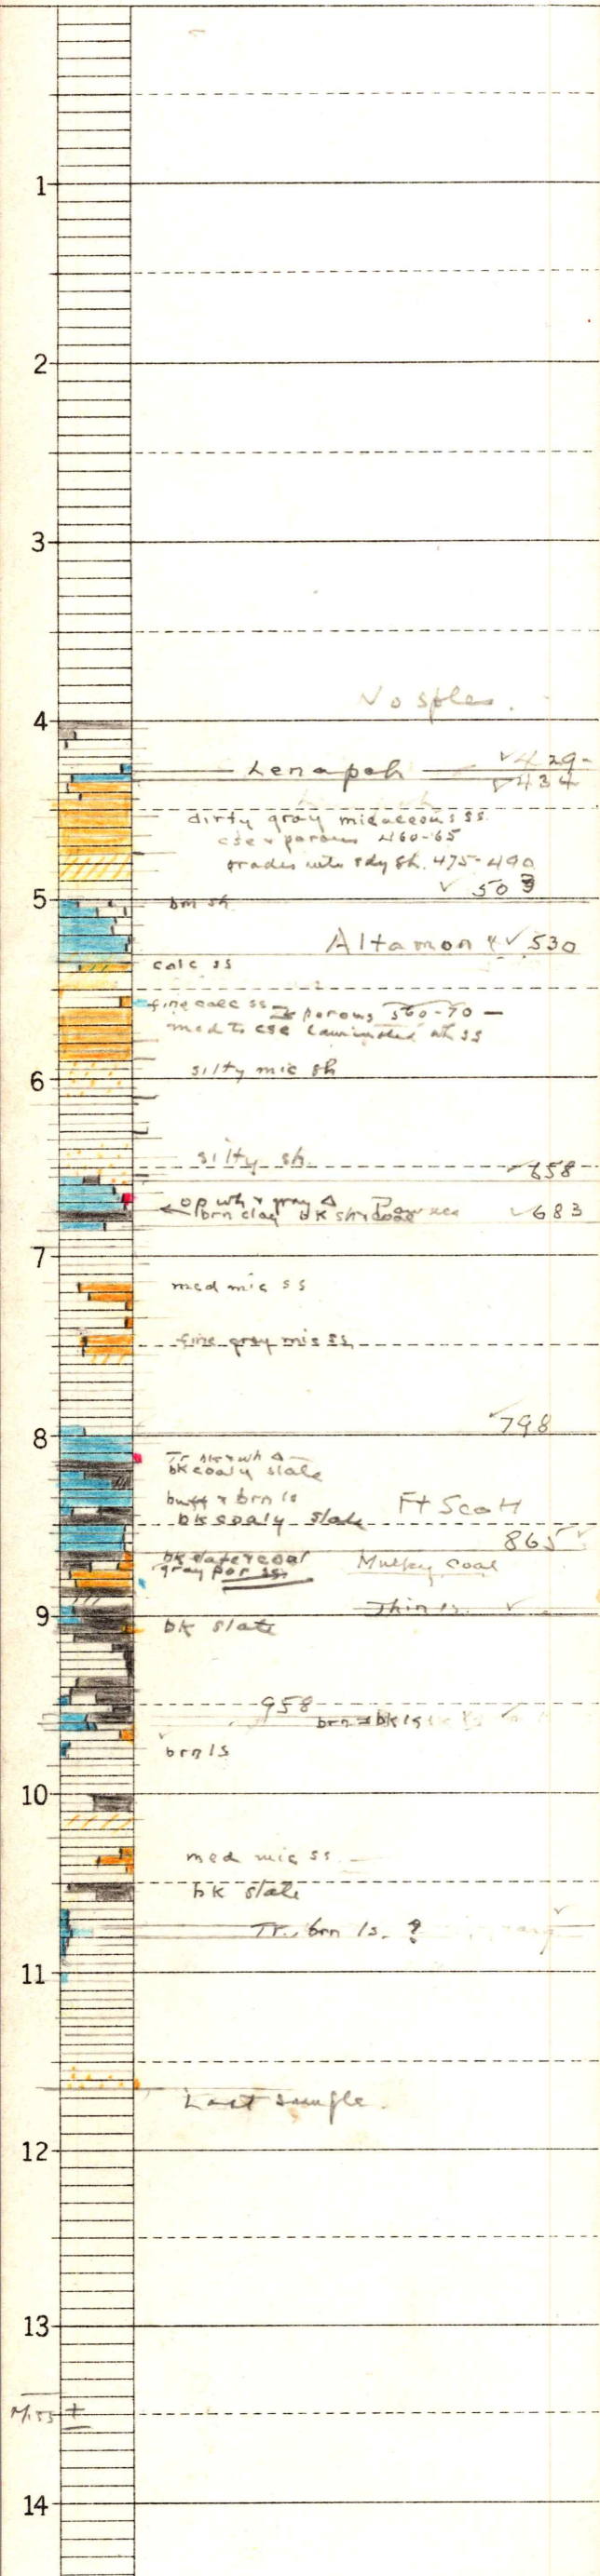 1
2
3
No sples.
4
Lenapah 429-
434
dirty gray micaceous ss
cse & porous 460-65
grades into sdy sh. 475-490
503
5
brn sh
Altamont 530
calc ss
fine calc ss
porous 560-70
med to cse laminated wh ss
silty mic sh
6
silty sh.
658
op wh & gray Δ Pawnee
brn clay bk sh & coal 683
7
med mic ss
fine gray mic ss
798
8
Tr bk & wh Δ
bk coaly slate
buff & brn ls
Ft Scott
bk coaly slate
865
bk slate & coal Mulky coal
gray por ss
Thin ls.
9
bk slate
958
brn & bk ls
brn ls
10
med mic ss
bk slate
Tr. brn ls. ?
11
Last sample.
12
13
Miss ±
14